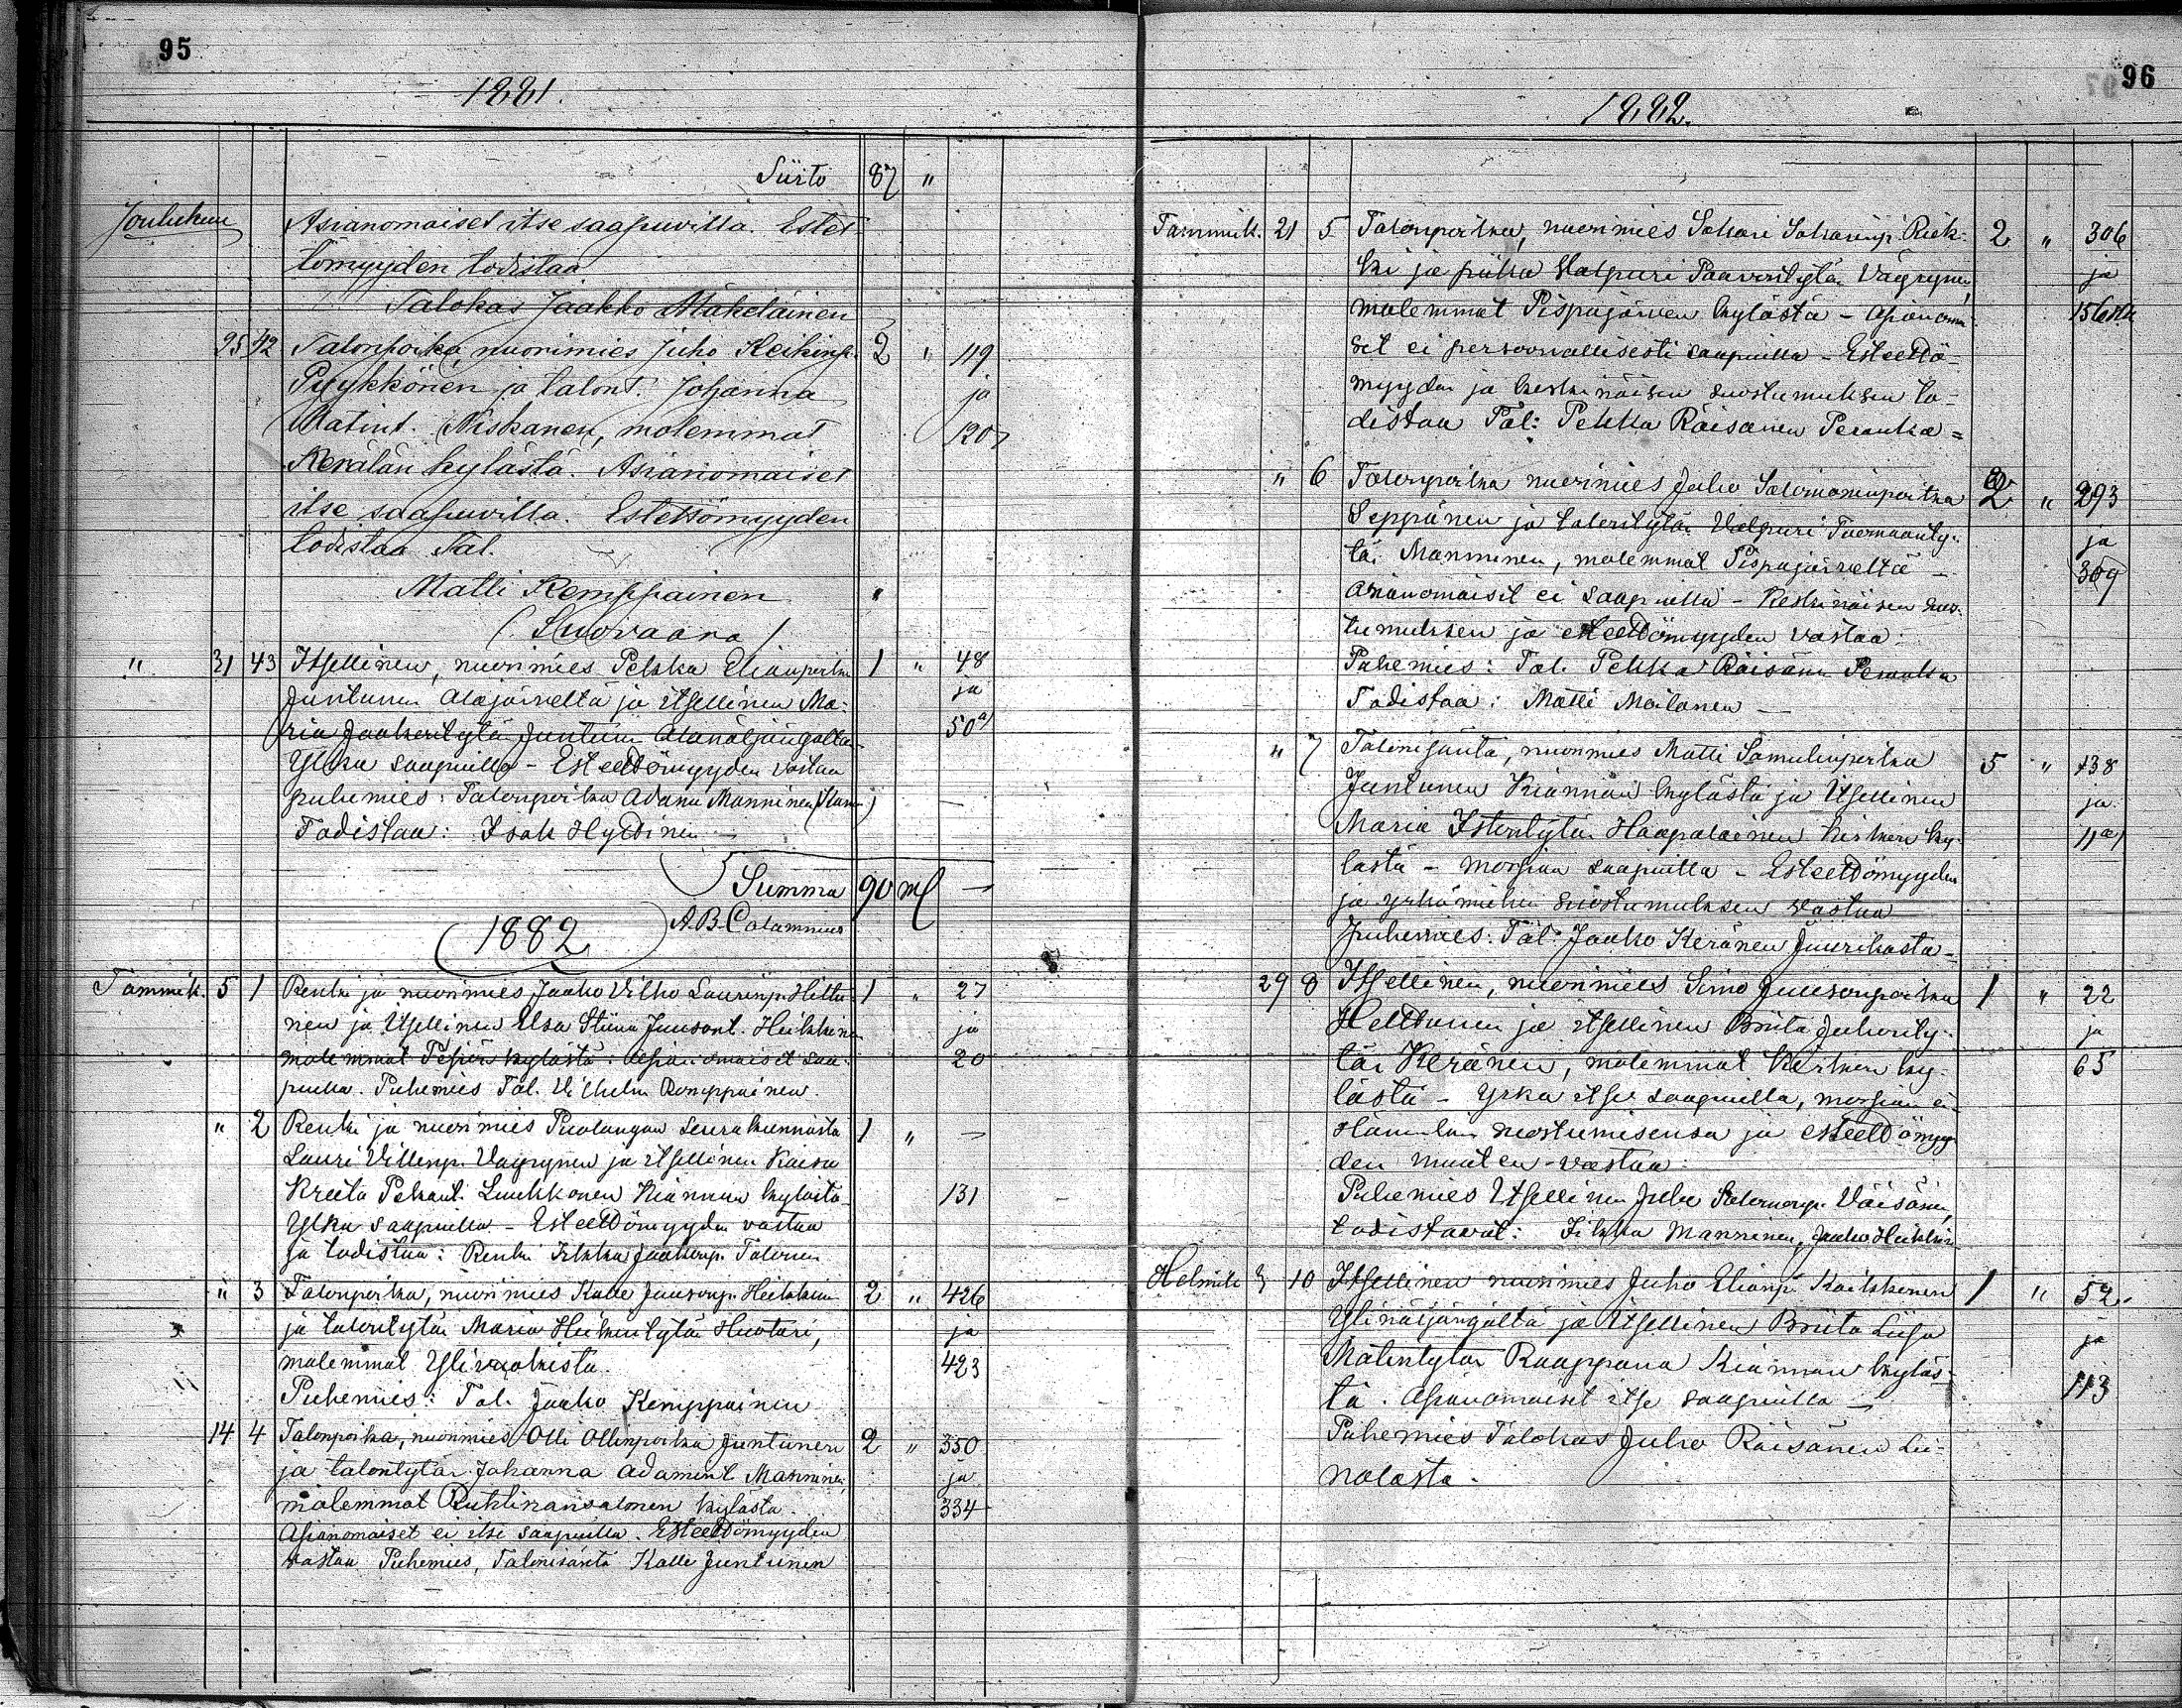 95
1881.
Siirto 87 "
Joulukuu Asianomaiset itse saapuvilla. Estet-
tömyyden todistaa
Talokas Jaakko Mäkeläinen
25 42 Talonpoika, nuorimies Juho Heikinp. 2 " 119
Pyykkönen ja talont. Johanna ja
Matint. Niskanen, molemmat 120
Kerälän kylästä. Asianomaiset
itse saapuvilla. Estettömyyden
todistaa Tal.
Matti Kemppainen "
(Suovaara)
" 31 43 Itsellinen, nuorimies Pekka Elianpoika 1 " 48
Juntunen Alajärveltä ja itsellinen Ma- ja
ria Jaakontytär Juntunen Alanäljängältä 50a)
Ylkä saapuilla - Esteettömyyden vastaa
puhemies: Talonpoika Adam Manninen
Todistaa: Isak Hyttinen
Summa 90 m —
1882 A.B. Calamnius
Tammik. 5 1 Renki ja nuorimies Jaako Vilho Laurinp. Hiltu- 1 " 27
nen ja Itsellinen Elsa Stiina Juusont. Heikkinen ja
molemmat Pesiön kylästä: Asianomaiset saa- 20
puilla. Puhemies Tal. Vilhelm Romppainen.
" 2 Renki ja nuorimies Puolangan Seurakunnasta 1 " —
Lauri Villenp. Väyrynen ja itsellinen Kaisa
Kreeta Pekant. Luukkonen Kiannan kylästä 131
Ylkä saapuilla - Esteettömyyden vastaa
ja todistaa: Renki Jaakonp. Talonen
" 3 Talonpoika, nuorimies Kalle Juusonp. Heikkinen 2 " 426
ja talontytär Maria Heikintytär Huotari, ja
molemmat Ylivuokista. 423
Puhemies: Tal. Jaako Kemppainen
14 4 Talonpoika, nuorimies Olli Ollinpoika Juntunen 2 " 350
ja talontytär Johanna Adamint. Manninen, ja
molemmat Ruhtinansalmen kylästä. 334
Asianomaiset ei itse saapuilla. Esteettömyyden
vastaa Puhemies, Talonisäntä Kalle Juntunen
96
1882.
Tammik. 21 5 Talonpoika, nuorimies Sakari Sakarinp. Riek- 2 " 306
ki ja piika Valpuri Paavontytär Väyrynen, ja
molemmat Pispajärven kylästä - Asianomai-
set ei persoonallisesti saapuilla - Esteettö-
myyden ja keskinäisen suostumuksen to-
distaa Tal: Pekka Räisänen Peranka =
" 6 Talonpoika nuorimies Juho Salomoninpoika 2 " 293
Seppänen ja talontytär Valpuri Tuomaanty- ja
tär Manninen, molemmat Pispajärveltä - 309
Asianomaiset ei saapuilla - Keskinäisen suos-
tumuksen ja esteettömyyden vastaa:
Puhemies: Tal. Pekka Räisänen Peranka
Todistaa: Matti Moilanen —
" 7 Talonisäntä, nuorimies Matti Samulinpoika 5 " 138
Juntunen Kiannan kylästä ja Itsellinen ja
Maria Haapalainen Kerkon ky- 11a)
lästä - morsian saapuilla - Esteettömyyden
ja yrkämiehen suostumuksen vastaa
puhemies: Tal: Jaako Keränen Juurikasta -
29 8 Itsellinen, nuorimies Simo Juusonpoika 1 " 22
Helttunen ja itsellinen Briita Juhonty- ja
tär Keränen, molemmat Kerkon ky- 65
lästä - Yrkä itse saapuilla, morsian ei -
Hänenkin suostumisensa ja esteettömyy-
den muuten - vastaa:
Puhemies Itsellinen Juho Salomonp. Väisänen,
todistavat: Manninen, Jaako Heikkin.
Helmik 3 10 Itsellinen nuorimies Juho Elianp. Kaikkonen 1 " 52.
Ylinäljängältä ja Itsellinen Briita Liisa ja
Matintytär Raappana Kiannan kyläs- 113
tä. Asianomaiset itse saapuilla —
Puhemies Talokas Juho Räisänen Lei-
nolasta.